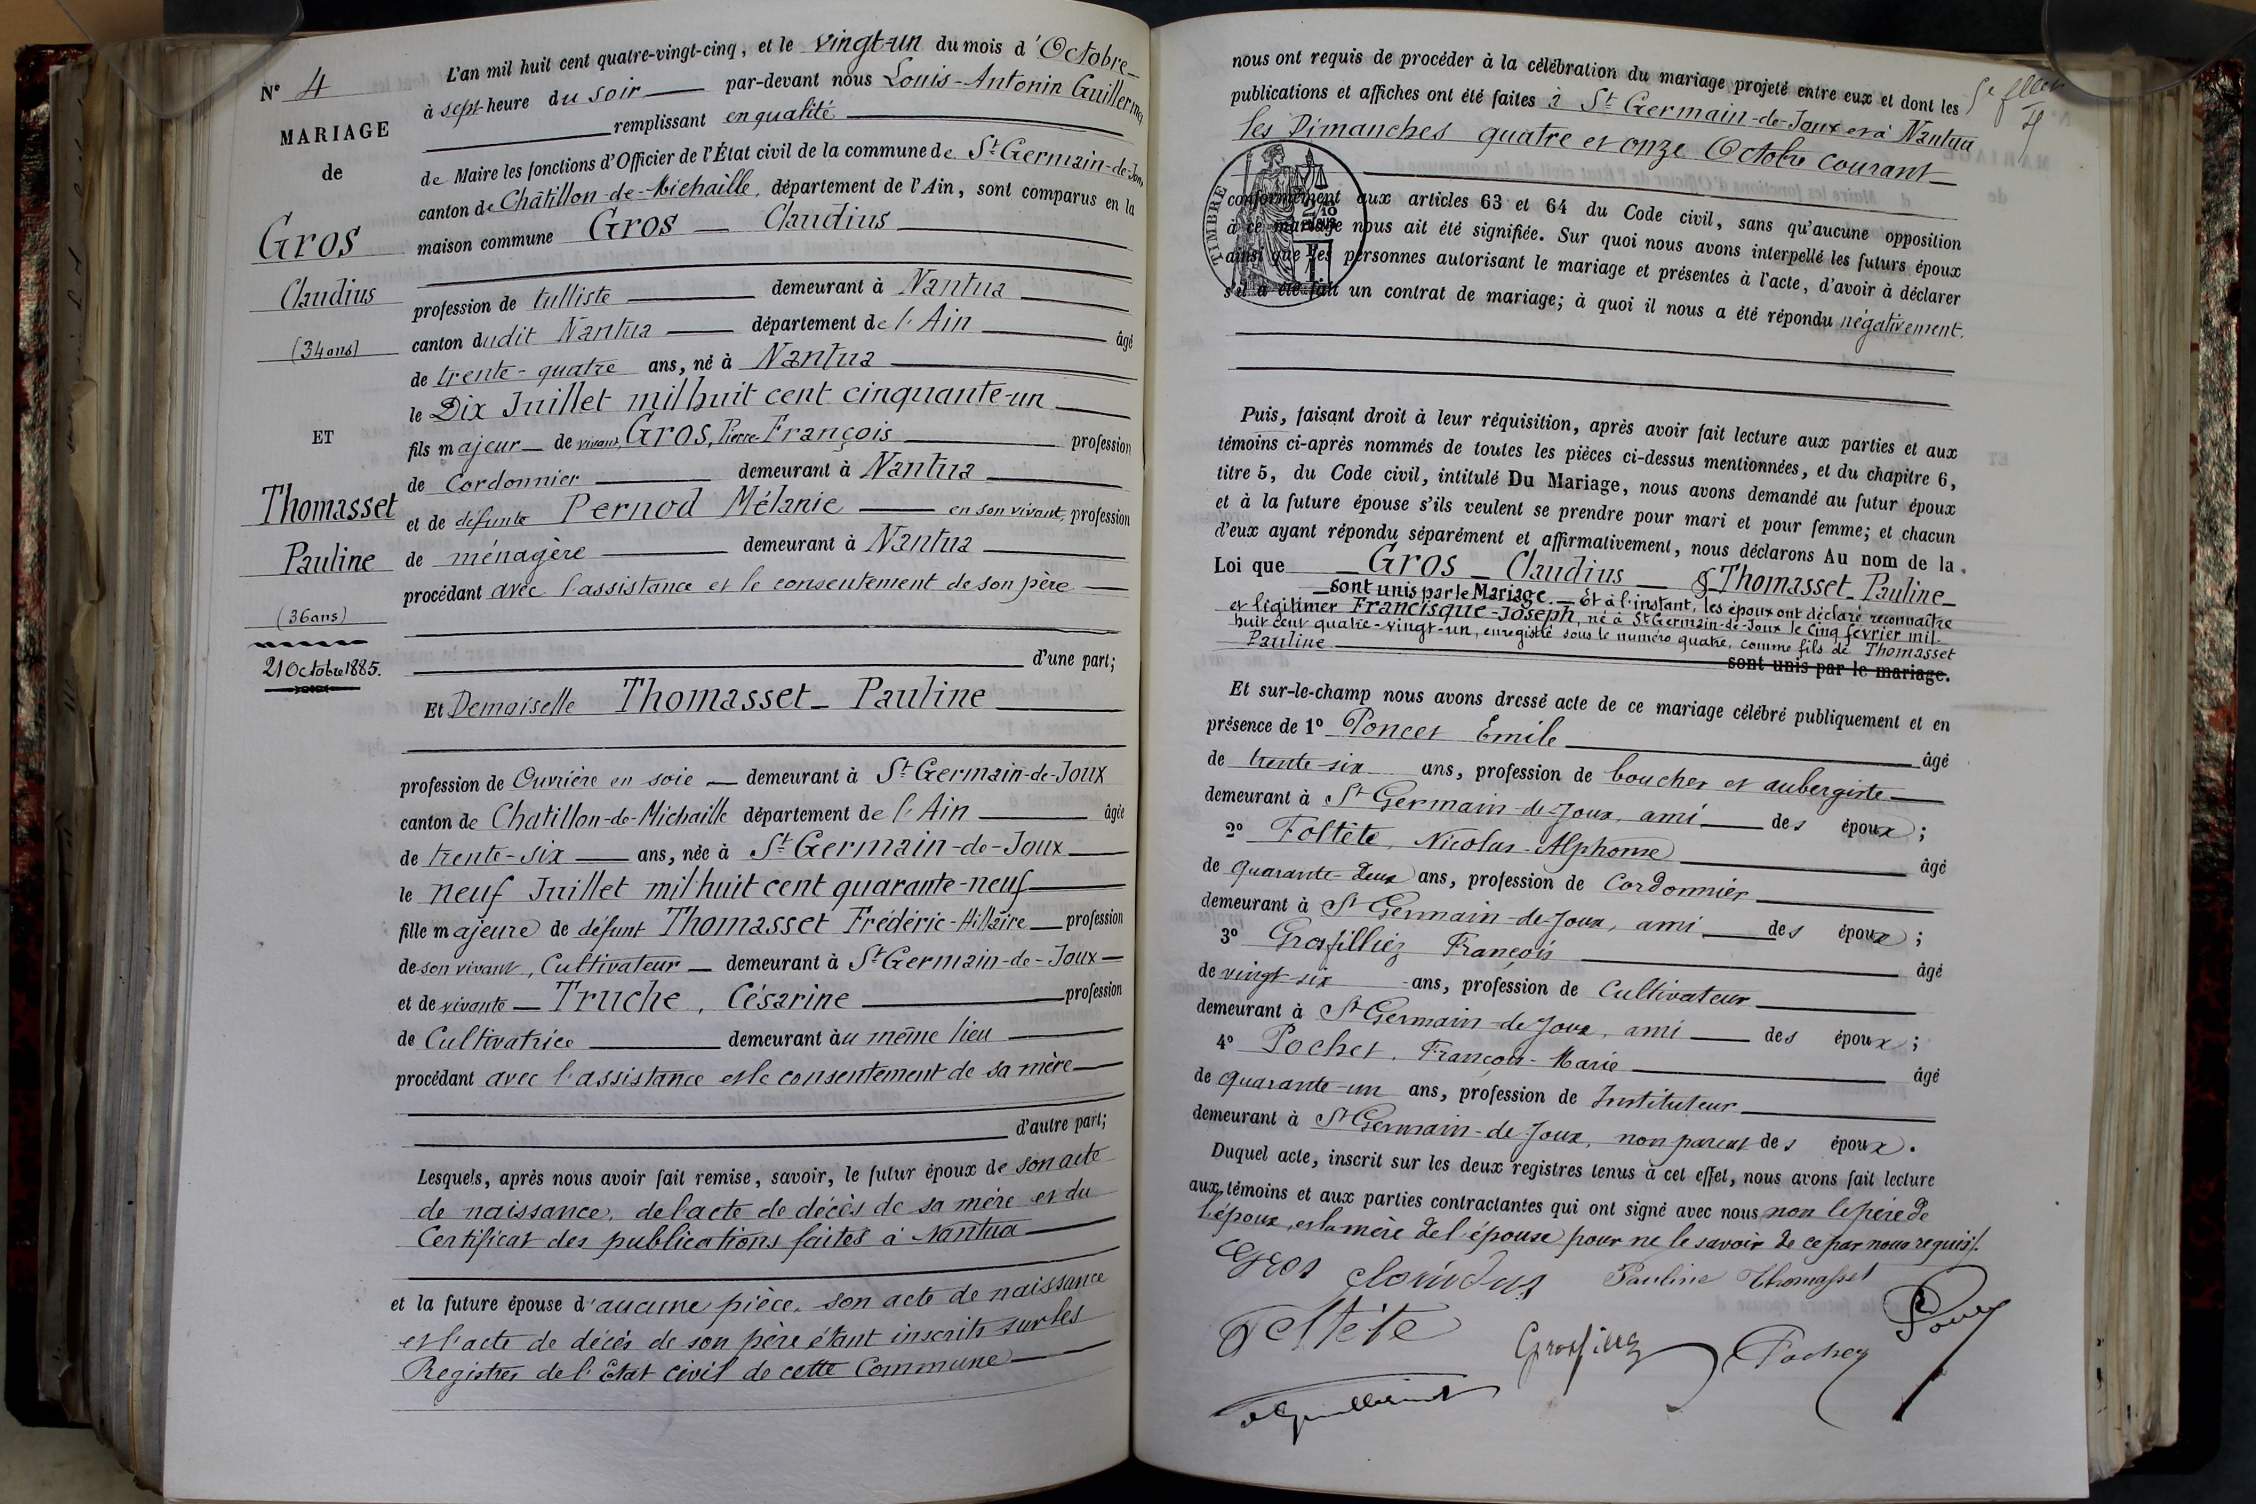 N° 4
MARIAGE
de
Gros
Claudius
(34 ans)
ET
Thomasset
Pauline
(36 ans)
21 Octobre 1885.
L'an mil huit cent quatre-vingt-cinq, et le vingt-un du mois d'Octobre
à sept heure du soir par-devant nous Louis-Antonin
remplissant en qualité
de Maire les fonctions d'Officier de l'État civil de la commune de St Germain-de-Joux,
canton de Châtillon-de-Michaille, département de l'Ain, sont comparus en la
maison commune Gros Claudius
profession de tulliste demeurant à Nantua
canton dudit Nantua département de l'Ain âgé
de trente-quatre ans, né à Nantua
le Dix Juillet mil huit cent cinquante-un
fils majeur de vivant, Gros, Pierre-François profession
de Cordonnier demeurant à Nantua
et de défunte Pernod Mélanie en son vivant, profession
de ménagère demeurant à Nantua
procédant avec l'assistance et le consentement de son père
d'une part;
Et Demoiselle Thomasset Pauline
profession de Ouvrière en soie demeurant à St Germain-de-Joux
canton de Chatillon-de-Michaille département de l'Ain âgée
de trente-six ans, née à St Germain-de-Joux
le neuf Juillet mil huit cent quarante-neuf
fille majeure de défunt Thomasset Frédéric-Hillaire profession
de son vivant, Cultivateur demeurant à St Germain-de-Joux
et de vivante Truche, Césarine profession
de Cultivatrice demeurant au même lieu
procédant avec l'assistance et le consentement de sa mère
d'autre part;
Lesquels, après nous avoir fait remise, savoir, le futur époux de son acte
de naissance, de l'acte de décès de sa mère et du
Certificat des publications faites à Nantua
et la future épouse d'aucune pièce, son acte de naissance
et l'acte de décès de son père étant inscrits sur les
Registres de l'Etat civil de cette Commune
nous ont requis de procéder à la célébration du mariage projeté entre eux et dont les
publications et affiches ont été faites à St Germain-de-Joux et à Nantua
les Dimanches quatre et onze Octobre courant
TIMBRE
conformément aux articles 63 et 64 du Code civil, sans qu'aucune opposition
à ce mariage nous ait été signifiée. Sur quoi nous avons interpellé les futurs époux
ainsi que les personnes autorisant le mariage et présentes à l'acte, d'avoir à déclarer
s'il a été fait un contrat de mariage; à quoi il nous a été répondu négativement.
Puis, faisant droit à leur réquisition, après avoir fait lecture aux parties et aux
témoins ci-après nommés de toutes les pièces ci-dessus mentionnées, et du chapitre 6,
titre 5, du Code civil, intitulé Du Mariage, nous avons demandé au futur époux
et à la future épouse s'ils veulent se prendre pour mari et pour femme; et chacun
d'eux ayant répondu séparément et affirmativement, nous déclarons Au nom de la
Loi que Gros Claudius & Thomasset Pauline
sont unis par le Mariage. Et à l'instant, les époux ont déclaré reconnaître
et légitimer Francisque-Joseph, né à St Germain-de-Joux le cinq février mil
huit cent quatre-vingt-un, enregistré sous le numéro quatre, comme fils de Thomasset
Pauline
sont unis par le mariage.
Et sur-le-champ nous avons dressé acte de ce mariage célébré publiquement et en
présence de 1° Poncet Emile âgé
de trente-six ans, profession de boucher et aubergiste
demeurant à St Germain-de-Joux, ami des époux;
2° Foltête, Nicolas-Alphonse âgé
de quarante-deux ans, profession de Cordonnier
demeurant à St Germain-de-Joux, ami des époux;
3° Grosfilliez François âgé
de vingt-six ans, profession de Cultivateur
demeurant à St Germain-de-Joux, ami des époux;
4° Pochet, François-Marie âgé
de quarante-un ans, profession de Instituteur
demeurant à St Germain-de-Joux, non parent des époux.
Duquel acte, inscrit sur les deux registres tenus à cet effet, nous avons fait lecture
aux témoins et aux parties contractantes qui ont signé avec nous, non le père de
l'époux, et la mère de l'épouse pour ne le savoir de ce par nous requis.
Gros Claudius Pauline Thomasset
Foltête